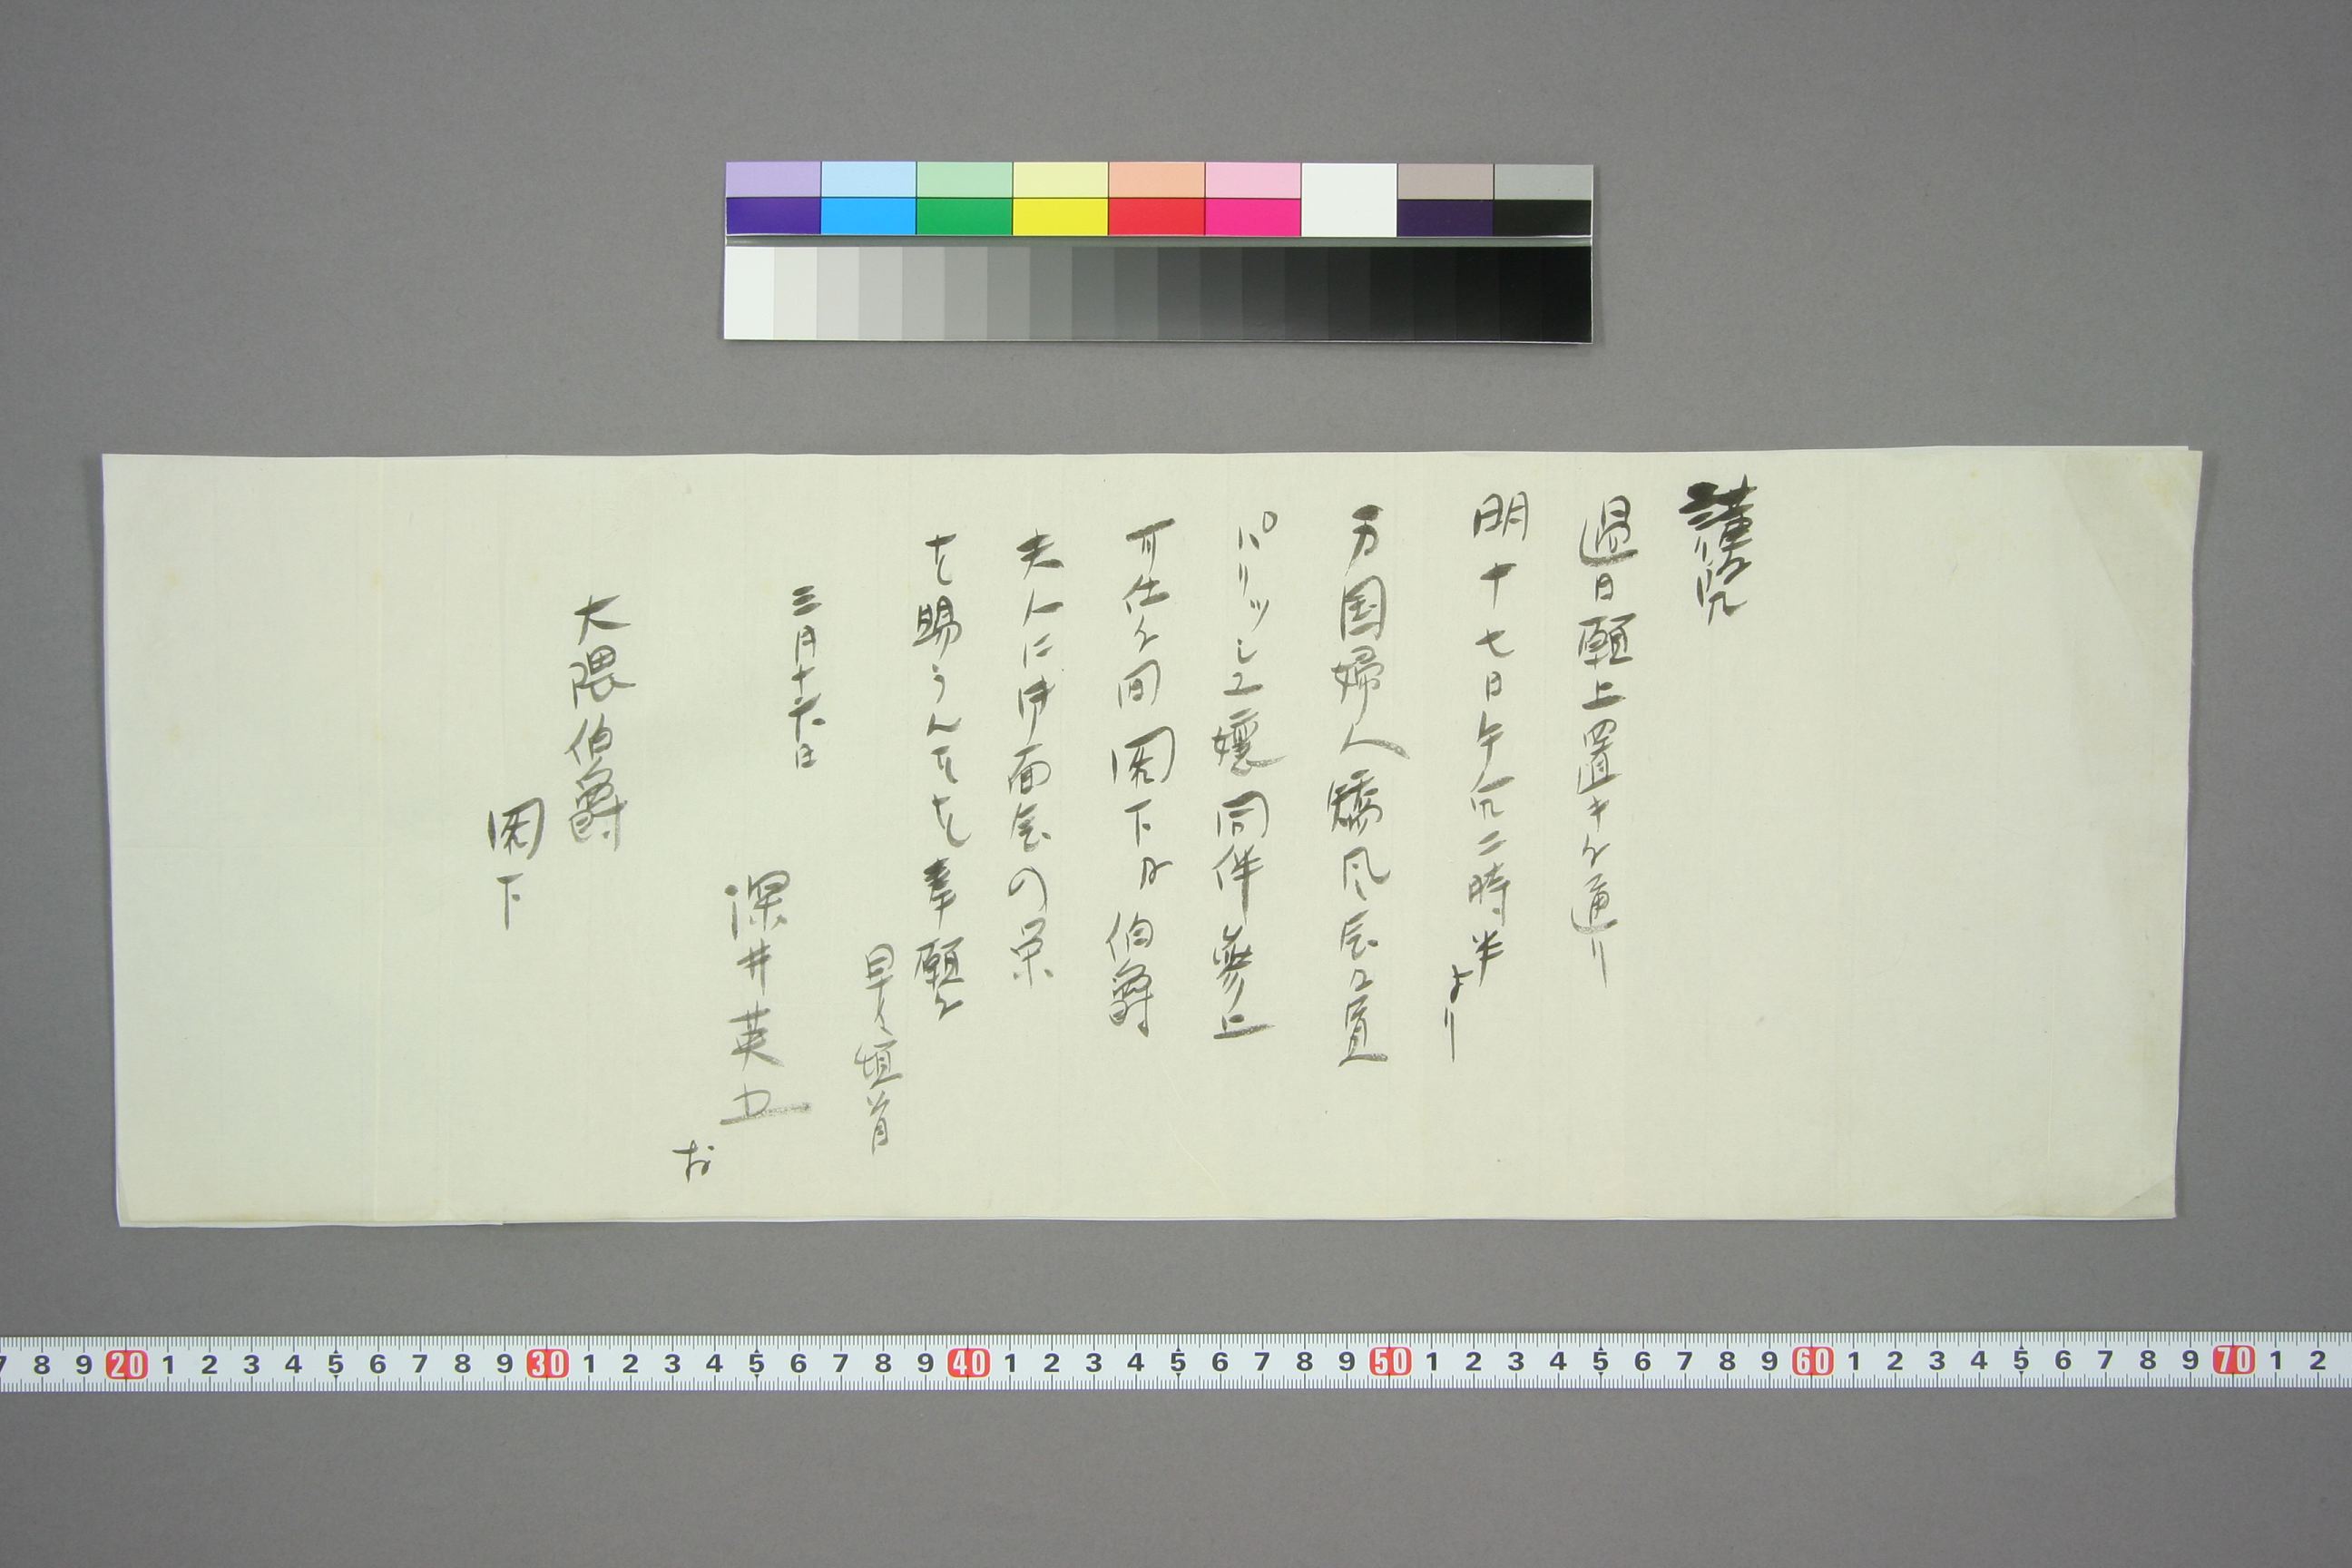 謹啓
過日願上置キ候通り
明十七日午后二時半より
万国婦人矯風会々員
パリッシユ嬢同伴参上
可仕候間閣下及伯爵
夫人に御面会の栄
を賜らんことを奉願候
早々頓首
三月十六日
深井英五
大隈伯爵
閣下
7 8 9 20 1 2 3 4 5 6 7 8 9 30 1 2 3 4 5 6 7 8 9 40 1 2 3 4 5 6 7 8 9 50 1 2 3 4 5 6 7 8 9 60 1 2 3 4 5 6 7 8 9 70 1 2